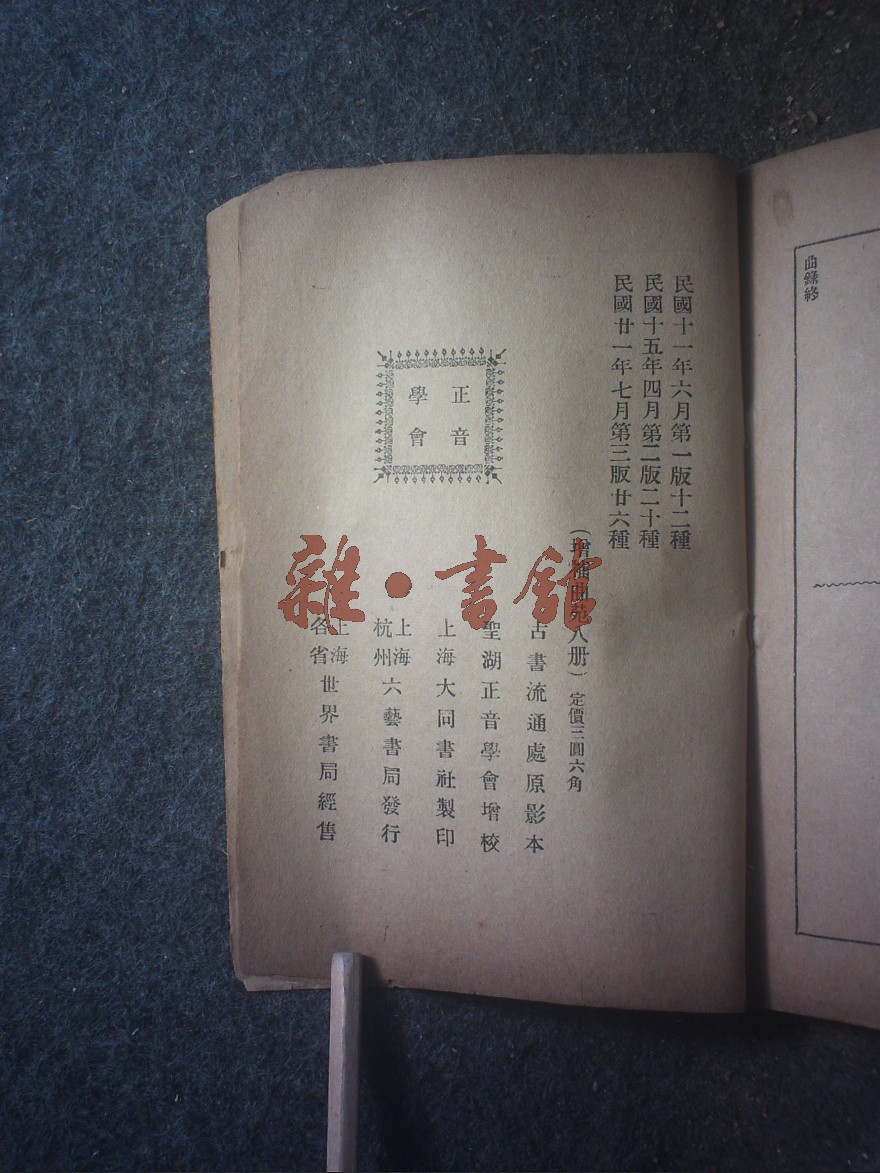 曲錄終
民國十一年六月第一版十二種
民國十五年四月第二版二十種
民國廿一年七月第三版廿六種
(增補曲苑八册) 定價三圓六角
古書流通處原影本
聖湖正音學會增校
上海大同書社製印
上海
杭州六藝書局發行
上海
各省世界書局經售
正音
學會
雜·書館